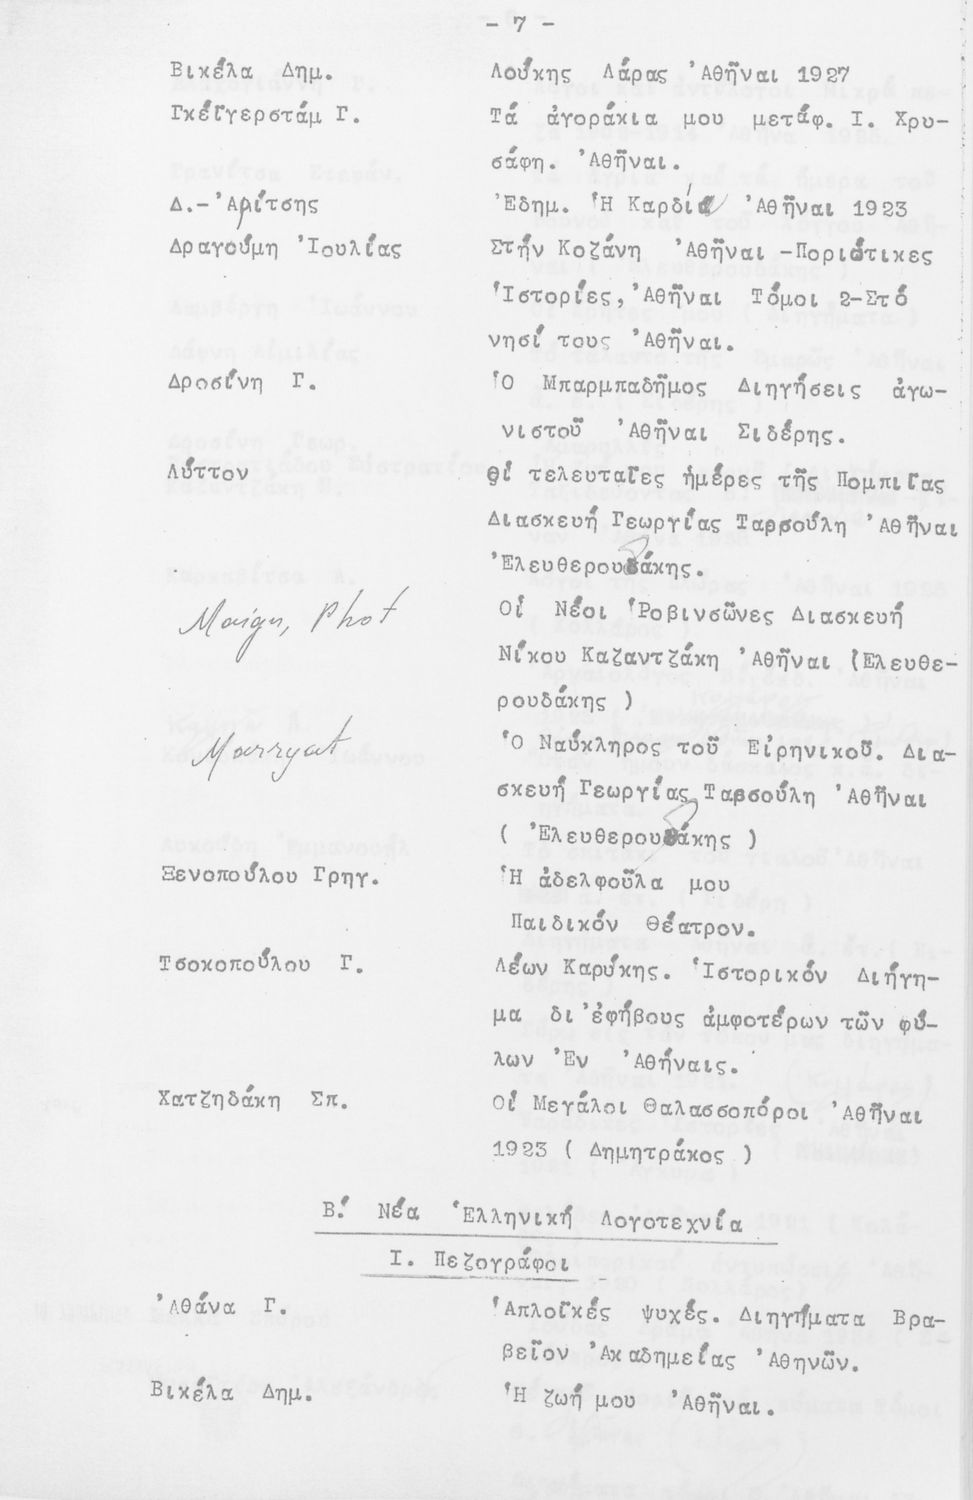 - 7 -
Βικέλα Δημ. Λούκης Λάρας Ἀθῆναι 1927
Γκέϊγερστάμ Γ. Τά ἀγοράκια μου μετάφ. Ι. Χρυ-
σάφη. Ἀθῆναι.
Δ.-Ἀρίτσης Ἐδημ. Ἡ Καρδιά Ἀθῆναι 1923
Δραγούμη Ἰουλίας Στήν Κοζάνη Ἀθῆναι -Ποριώτικες
Ἱστορίες, Ἀθῆναι Τόμοι 2-Στό
νησί τους Ἀθῆναι.
Δροσίνη Γ. Ὁ Μπαρμπαδῆμος Διηγήσεις ἀγω-
νιστοῦ Ἀθῆναι Σιδέρης.
Λύττον Οἱ τελευταῖες ἡμέρες τῆς Πομπιΐας
Διασκευή Γεωργίας Ταρσούλη Ἀθῆναι
Ἐλευθερουδάκης.
Οἱ Νέοι Ῥοβινσῶνες Διασκευή
Νίκου Καζαντζάκη Ἀθῆναι (Ελευθε-
ρουδάκης )
Marryat Ὁ Ναύκληρος τοῦ Εἰρηνικοῦ. Δια-
σκευή Γεωργίας Ταρσούλη Ἀθῆναι
( Ἐλευθερουδάκης )
Ξενοπούλου Γρηγ. Ἡ ἀδελφοῦλα μου
Παιδικόν Θέατρον.
Τσοκοπούλου Γ. Λέων Καρύκης. Ἱστορικόν Διήγη-
μα δι'ἐφήβους ἀμφοτέρων τῶν φύ-
λων Ἐν Ἀθήναις.
Χατζηδάκη Σπ. Οἱ Μεγάλοι Θαλασσοπόροι Ἀθῆναι
1923 ( Δημητράκος )
Β! Νέα Ἑλληνική Λογοτεχνία
Ι. Πεζογράφοι
Ἀθάνα Γ. Ἁπλοϊκές ψυχές. Διηγήματα Βρα-
βεῖον Ἀκαδημείας Ἀθηνῶν.
Βικέλα Δημ. Ἡ ζωή μου Ἀθῆναι.